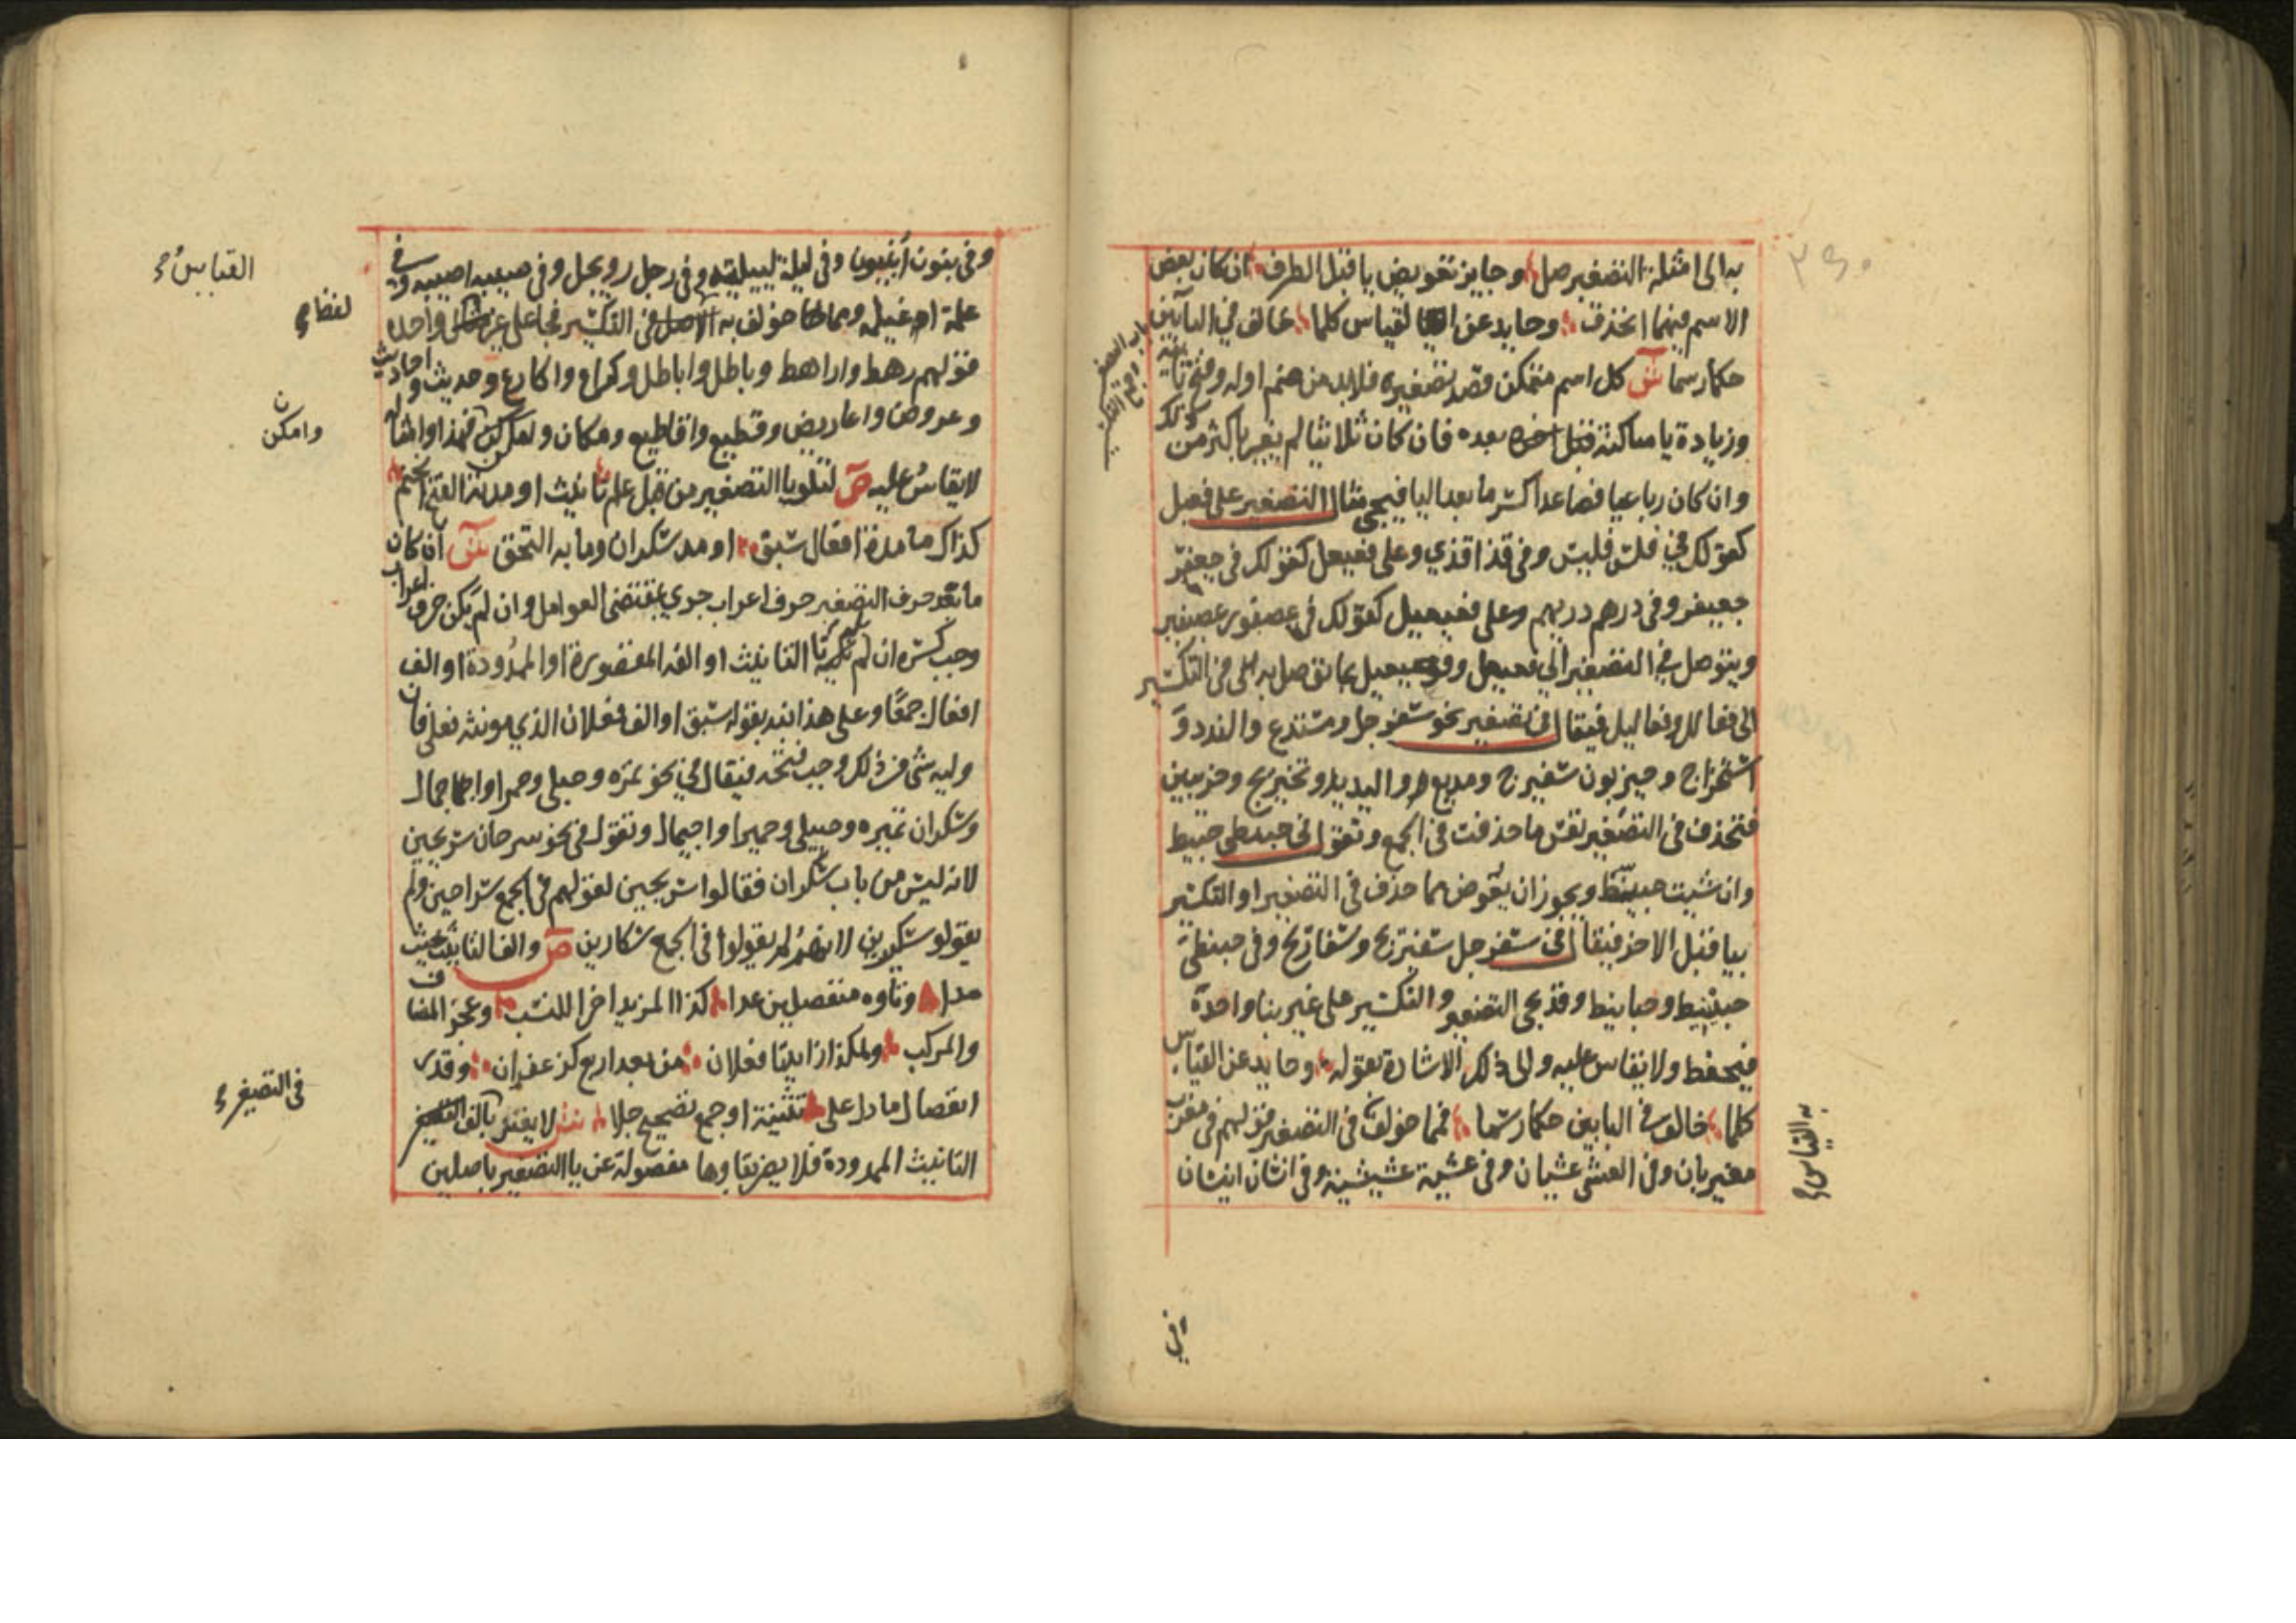 به الى امثلة التصغير صل وجايز تعويض يا قبل الطرف ان كان بعض
الاسم فيهما انحذف وحايد عن القياس كلما خالف في البابين
حكما رسما ش كل اسم متمكن قصد تصغيره فلابد من ضم اوله وفتح ثانيه
وزيادة يا ساكنة بعده فان كان ثلاثيا لم يغير باكثر من ذلك
وان كان رباعيا فصاعدا كسر ما بعد اليا فيجي مثال التصغير على فعيل
كقولك في فلس فليس وفي قذا قذي وعلى فعيعل كقولك في جعفر
جعيفر وفي درهم دريهم وعلى فعيعيل كقولك في عصفور عصيفير
ويتوصل في التصغير الى فعيعل وفعيعيل بما توصل به الى في التكسير
الى فعالل وفعاليل فيقال في تصغير نحو سفرجل ومستدع والندد و
استخراج وحيزبون سفيرج ومديع واليد وتخيريج وحزيبين
فتحذف في التصغير نفس ما حذفت في الجمع وتقول في حبنطى حبيط
وان شيت حبينط ويجوز ان يعوض مما حذف في التصغير او التكسير
بيا قبل الاخر فيقال في سفرجل سفيريج وسفاريج وفي حبنطى
حبينيط وحبانيط وقد يجي التصغير والتكسير على غير بنا واحده
فيحفظ ولا يقاس عليه والى ذلك الاشارة بقوله وحايد عن القياس
كلما خالف في البابين حكما رسما فمما خولف في التصغير قولهم في مغرب
مغيربان وفي العشى عشيان وفي عشية عشيشية وفي انسان انيسان
به القياس
وفي بنون أبينون وفي ليلة لييلية وفي رجل رويجل وفي صبية اصيبية وفي
غلمة اغيلمة ومما خولف به في التكسير فجا على غير واحده
قولهم رهط واراهط وباطل واباطل وكراع واكارع وحديث واحاديث
وعروض واعاريض وقطيع واقاطيع ومكان وامكن فهذا وامثاله
لا يقاس عليه ص لتلو يا التصغير من قبل علم تانيث او مدته الفتح انحتم
كذاك ما مدة افعال سبق او مد سكران وما به التحق ش ان كان
ما بعد حرف التصغير حرف اعراب جري بمقتضى العوامل وان لم يكن حرف اعراب
وجب كسره ان لم يكن تا التانيث او الفه المقصورة او الممدودة او الف
افعال جمعا وعلى هذا نبه بقوله سبق او الف فعلان الذي مونثه فعلى فان
وليه شي من ذلك وجب فتحه فيقال في نحو تمره وحبلى وحمرا واجمال
وسكران تميره وحبيلى وحميرا واجيمال وتقول في نحو سرحان سريحين
لانه ليس من باب سكران فقالوا سريحين لقولهم في الجمع سراحين ولم
يقولو سكيرين لانهم لم يقولوا في الجمع سكارين ص والف التانيث حيث
مدا وتاوه منفصلين عدا كذا المزيد اخرا للنسب وعجز المضاف
والمركب وهكذا زايدتا فعلان من بعد اربع كزعفران وقدر
انفصال ما دل على تثنية او جمع تصحيح جلا ش لا يعتد بالف
التانيث الممدودة فلا يضر بقاوها مفصولة عن يا التصغير باصلين
القياس
لفظا
وامكن
في التصغير